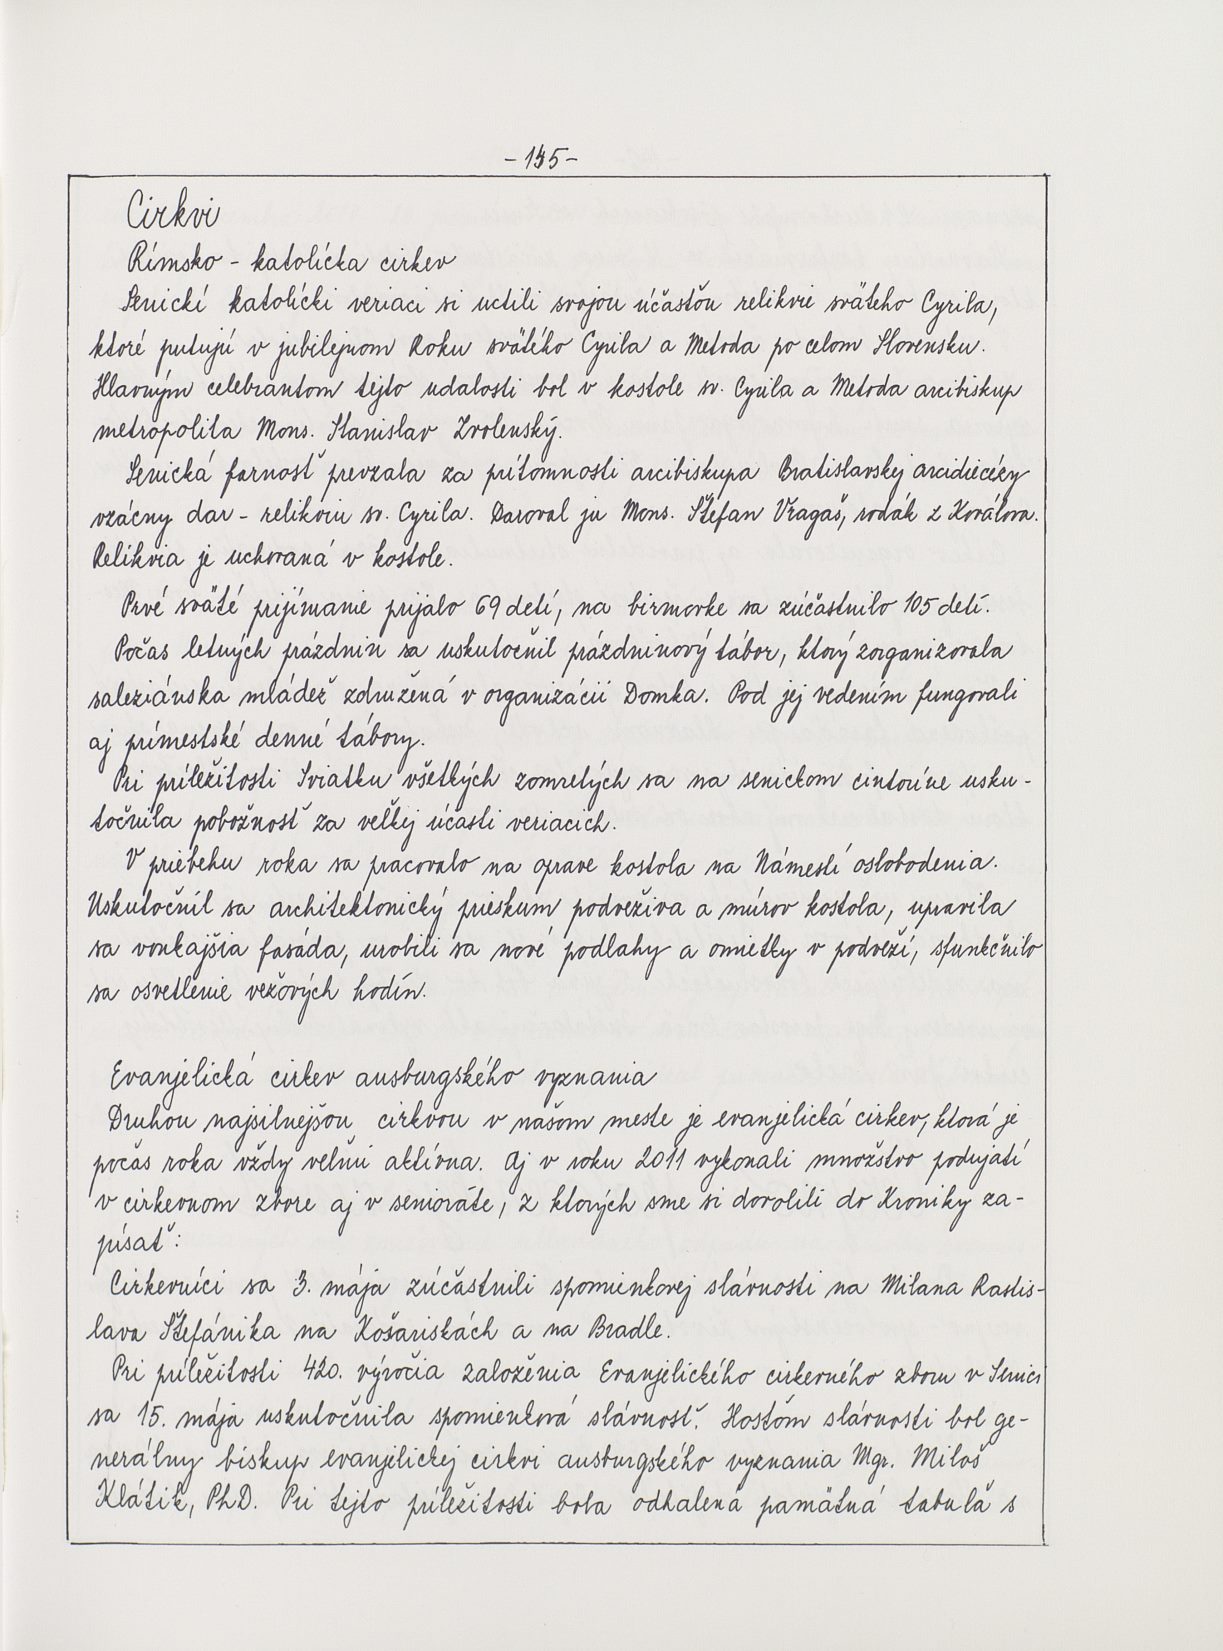 - 145 -
Cirkvi
Rímsko - katolícka cirkev
Senickí katolícki veriaci si uctili svojou účasťou relikvie svätého Cyrila,
ktoré putujú v jubilejnom Roku svätého Cyrila a Metoda po celom Slovensku.
Hlavným celebrantom tejto udalosti bol v kostole sv. Cyrila a Metoda arcibiskup
metropolita Mons. Stanislav Zvolenský.
Senická farnosť prevzala za prítomnosti arcibiskupa Bratislavskej arcidiecézy
vzácny dar - relikviu sv. Cyrila. Daroval ju Mons. Štefan Vragaš, rodák z Koválova.
Relikvia je uchovaná v kostole.
Prvé sväté prijímanie prijalo 69 detí, na birmovke sa zúčastnilo 105 detí.
Počas letných prázdnin sa uskutočnil prázdninový tábor, ktorý zorganizovala
saleziánska mládež združená v organizácii Domka. Pod jej vedením fungovali
aj prímestské denné tábory.
Pri príležitosti Sviatku všetkých zomrelých sa na senickom cintoríne usku-
točnila pobožnosť za veľkej účasti veriacich.
V priebehu roka sa pracovalo na oprave kostola na Námestí oslobodenia.
Uskutočnil sa architektonický prieskum podveživa a múrov kostola, upravila
sa vonkajšia fasáda, urobili sa nové podlahy a omietky v podveží, sfunkčnilo
sa osvetlenie vežových hodín.
Evanjelická cirkev ausburgského vyznania
Druhou najsilnejšou cirkvou v našom meste je evanjelická cirkev, ktorá je
počas roka vždy veľmi aktívna. Aj v roku 2011 vykonali množstvo podujatí
v cirkevnom zbore aj v senioráte, z ktorých sme si dovolili do Kroniky za-
písať:
Cirkevníci sa 3. mája zúčastnili spomienkovej slávnosti na Milana Rastis-
lava Štefánika na Košariskách a na Bradle.
Pri príležitosti 420. výročia založenia Evanjelického cirkevného zboru v Senici
sa 15. mája uskutočnila spomienková slávnosť. Hosťom slávnosti bol ge-
nerálny biskup evanjelickej cirkvi ausburgského vyznania Mgr. Miloš
Klátik, PhD. Pri tejto príležitosti bola odhalená pamätná tabuľa s